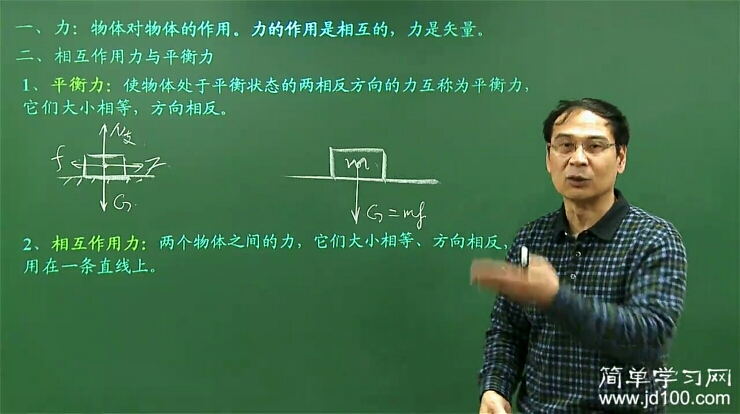 一、力：物体对物体的作用。力的作用是相互的，力是矢量。
二、相互作用力与平衡力
1、平衡力：使物体处于平衡状态的两相反方向的力互称为平衡力，
它们大小相等，方向相反。
N支
f
F
G
m
G=mg
2、相互作用力：两个物体之间的力，它们大小相等、方向相反，
用在一条直线上。
简单学习网
www.jd100.com